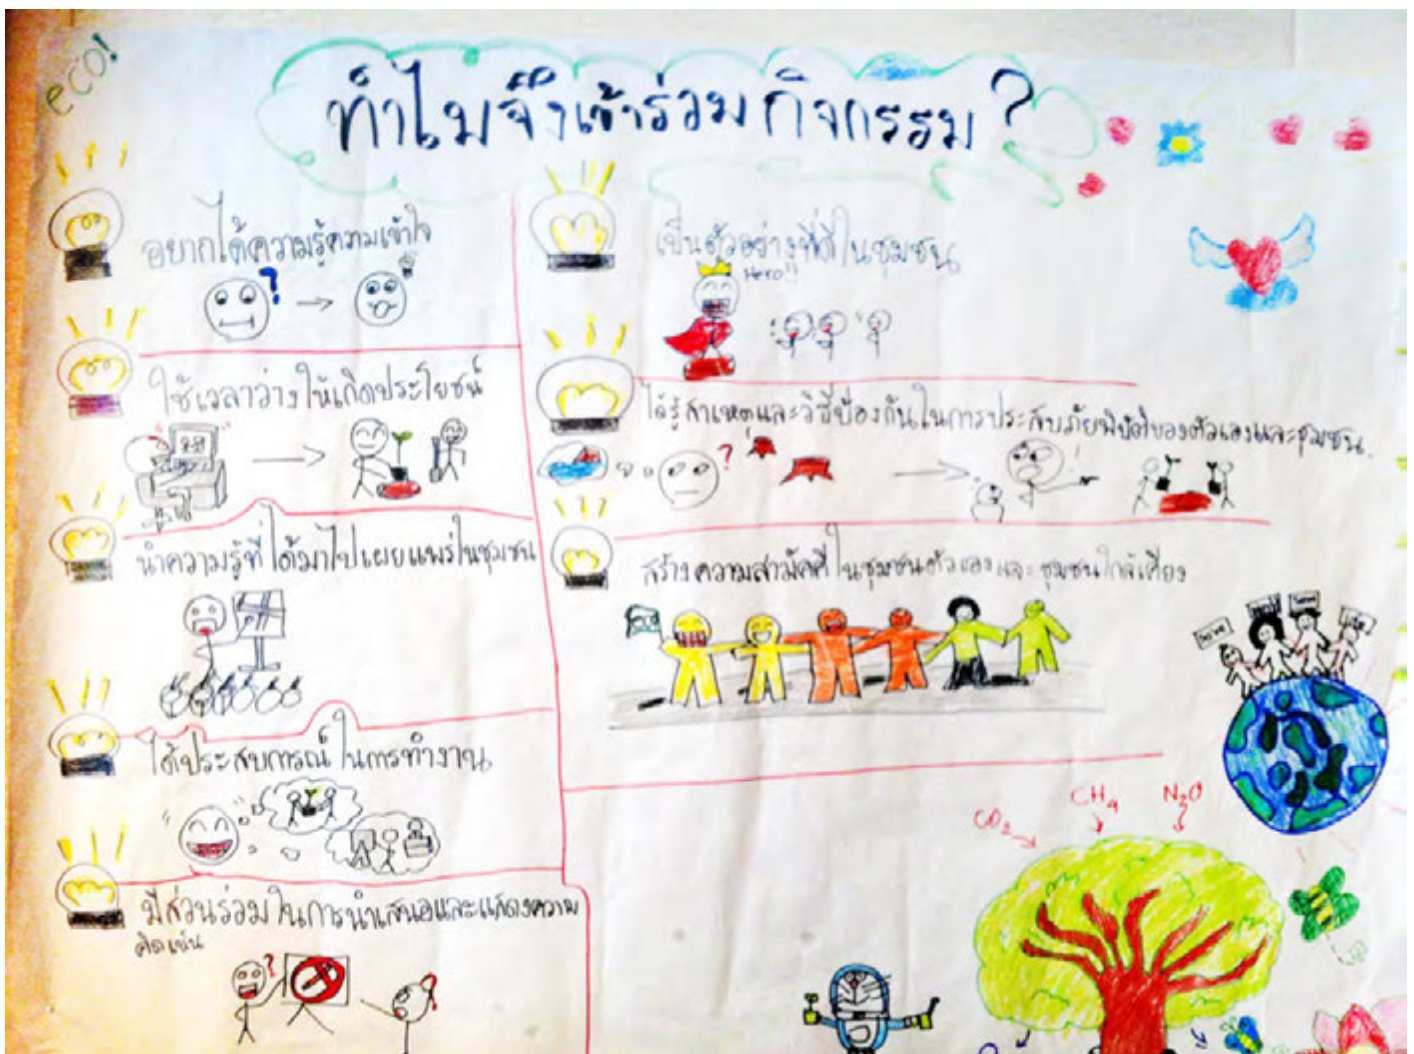 eco!
ทำไมจึงเข้าร่วมกิจกรรม?
อยากได้ความรู้ความเข้าใจ
?
ใช้เวลาว่างให้เกิดประโยชน์
นำความรู้ที่ได้มาไปเผยแพร่ในชุมชน
ได้ประสบการณ์ในการทำงาน
มีส่วนร่วมในการนำเสนอและแสดงความ
คิดเห็น
?
เป็นตัวอย่างที่ดีในชุมชน
Hero
ได้รู้สาเหตุและวิธีป้องกันในการประสบภัยพิบัติของตัวเองและชุมชน.
?
สร้างความสามัคคีในชุมชนตัวเองและชุมชนใกล้เคียง
CO2 CH4 N2O